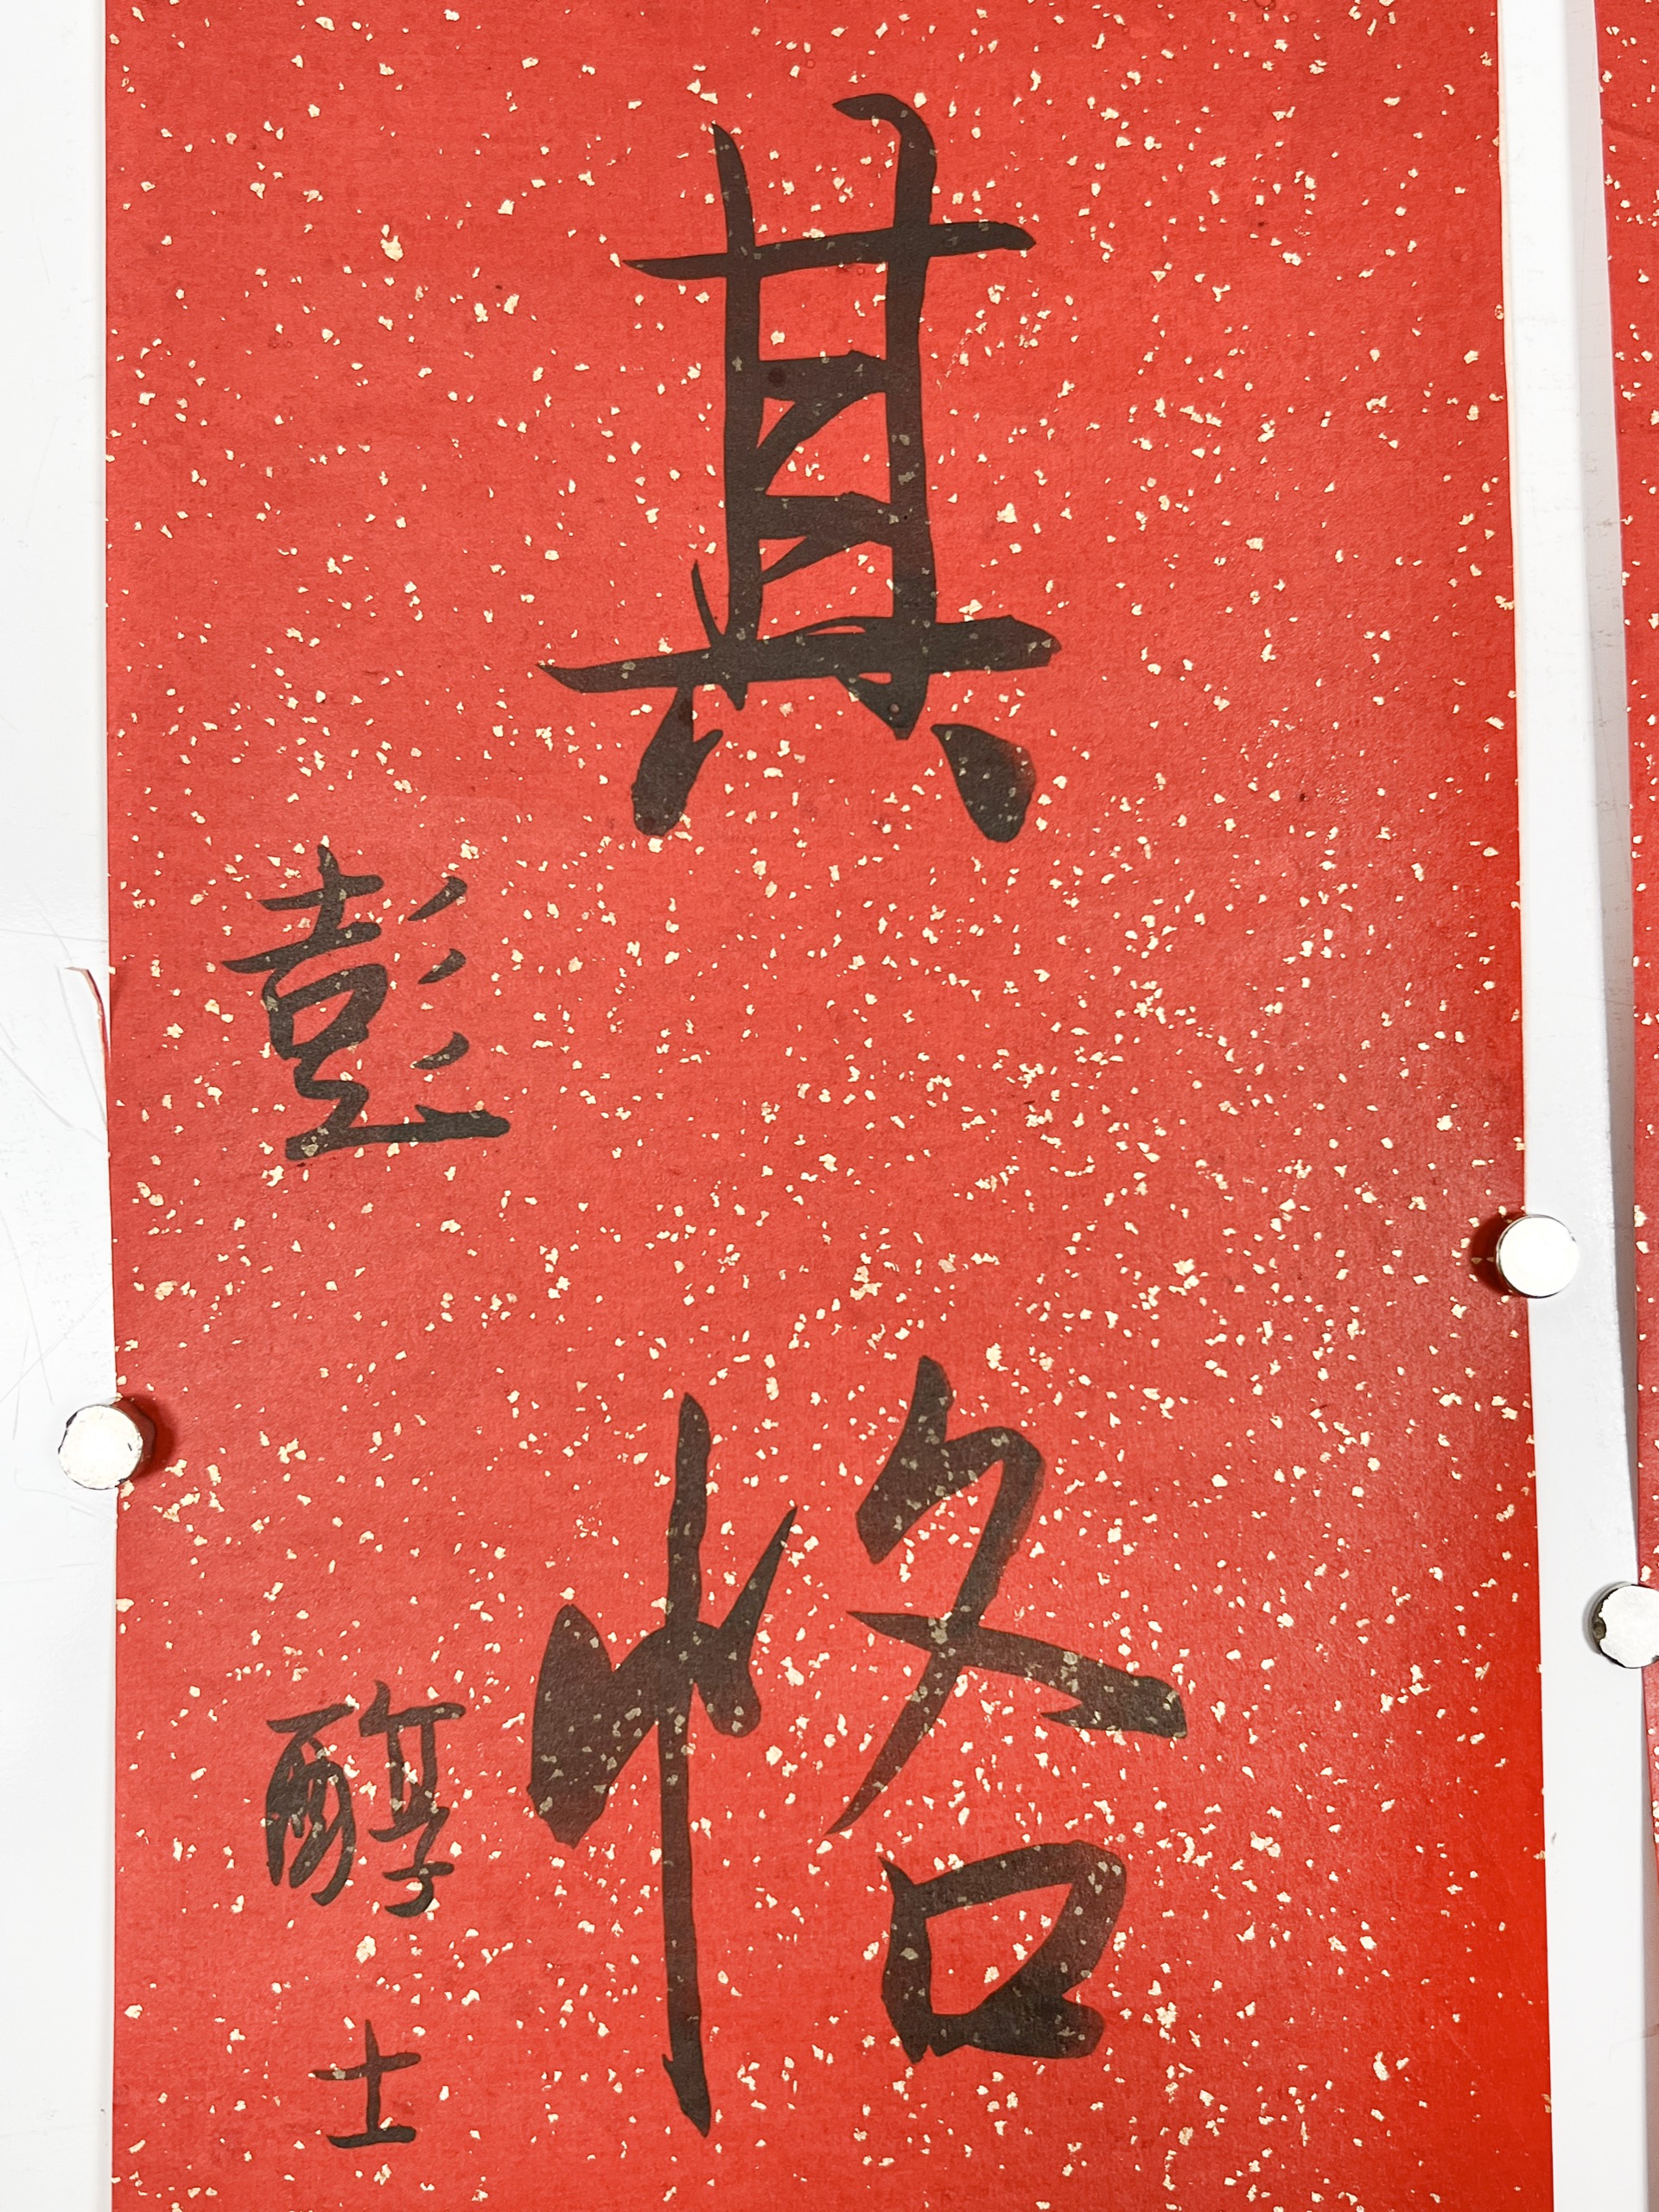 其恪
彭醇士